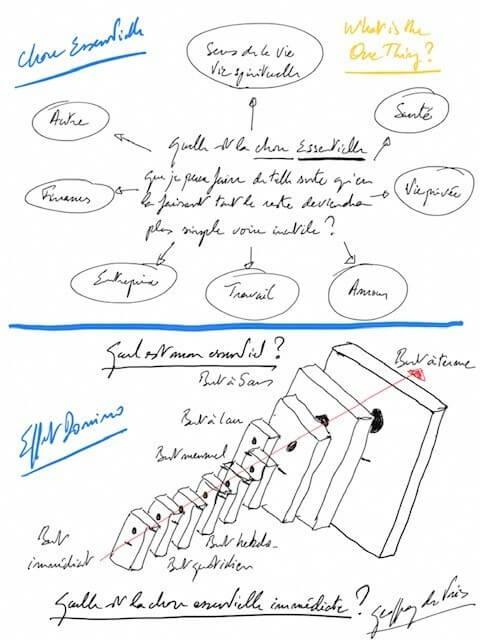 Chose Essentielle
Sens de la vie
Vie spirituelle
What is the
One Thing?
Autre
Santé
Quelle est la chose Essentielle
que je peux faire de telle sorte qu'en
la faisant tout le reste deviendra
plus simple voire inutile?
Finances
Vie privée
Entreprise
Travail
Amour
Quel est mon essentiel?
But à terme
But à 5 ans
But à 1 an
Effet Domino
But mensuel
But
immédiat
But hebdo
But quotidien
Quelle est la chose essentielle immédiate?